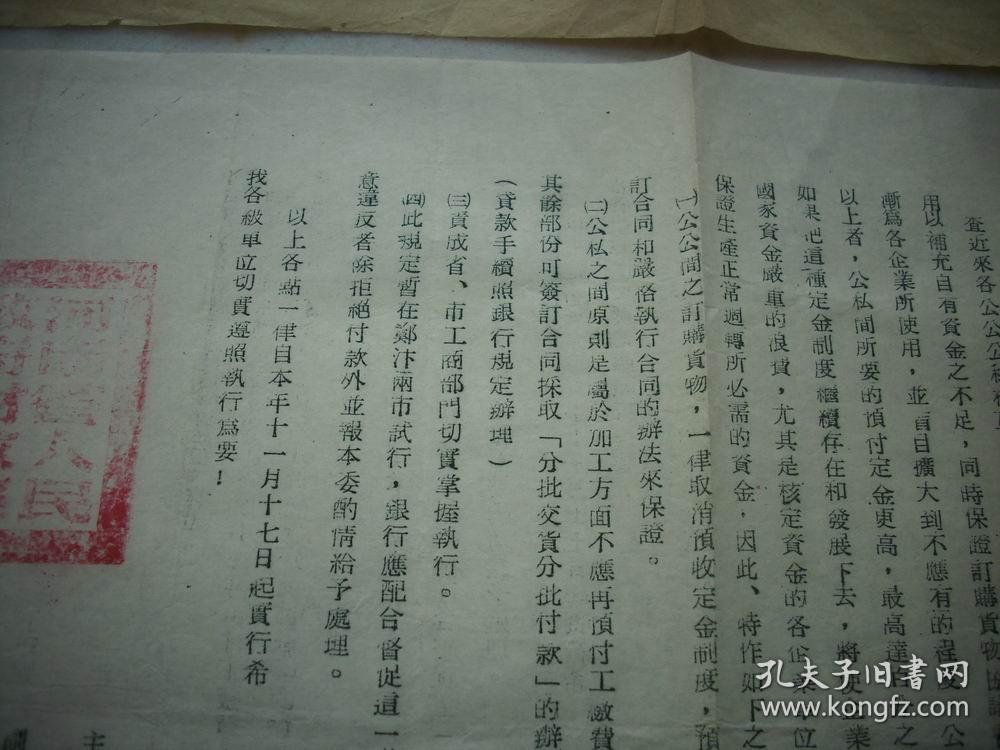 查近來各公
用以補充自有資金之不足，同時保證訂購貨物
漸爲各企業所使用，並盲目擴大到不應有的程度，公
以上者，公私間所要的預付定金更高，最高達百之
如果把這種定金制度繼續存在和發展下去，將使企業
國家資金嚴重的浪費，尤其是核定資金的各企業單位
保證生產正常週轉所必需的資金，因此、特作如下之
㈠公公間之訂購貨物，一律取消預收定金制度，預
訂合同和嚴格執行合同的辦法來保證。
㈡公私之間原則是屬於加工方面不應再預付工繳費
其餘部份可簽訂合同採取「分批交貨分批付款」的辦
（貸款手續照銀行規定辦理）
㈢責成省、市工商部門切實掌握執行。
㈣此規定暫在鄭汴兩市試行，銀行應配合督促這一
意違反者除拒絕付款外並報本委酌情給予處理。
以上各點一律自本年十一月十七日起實行希
我各級單位切實遵照執行爲要！
河南
人民
主
孔夫子旧书网
www.kongfz.com